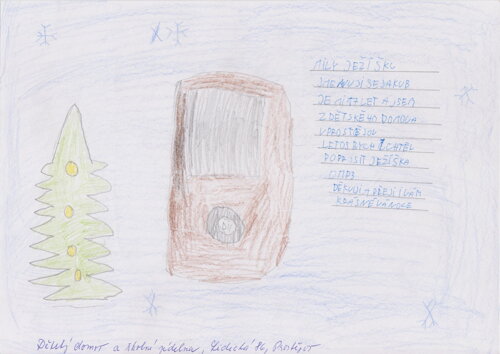 MILÝ JEŽÍŠKU
JMENUJI SE JAKUB
JE MI 12 LET A JSEM
Z DĚTSKÉHO DOMOVA
V PROSTĚJOV
LETOS BYCH CHTĚL
POPROSIT JEŽÍŠKA
O MP3
DĚKUJI A PŘEJI VÁM
KRÁSNÉ VÁNOCE
Dětský domov a školní jídelna, Lidická 86, Prostějov